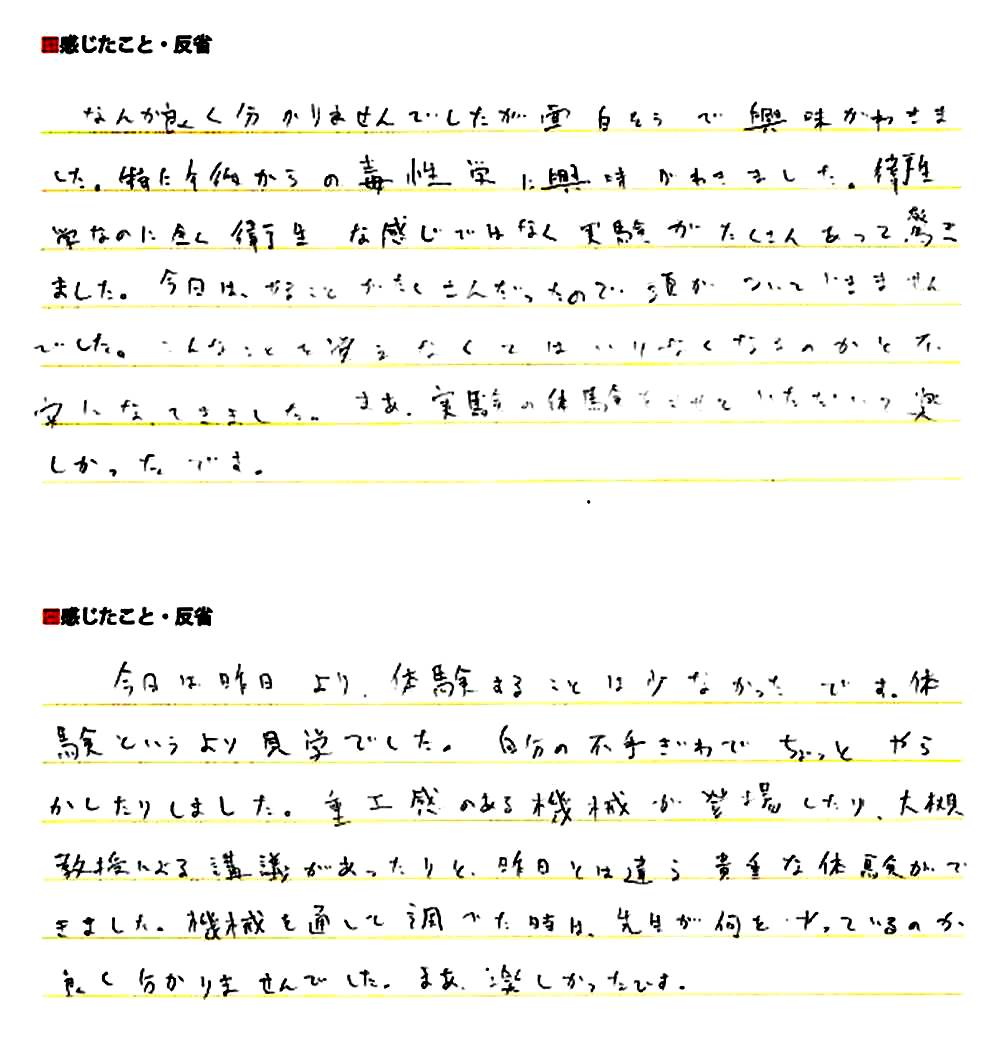 ■感じたこと・反省
なんか良く分かりませんでしたが面白そうで興味がわきま
した。特に午後からの毒性学に興味がわきました。衛生
学なのに全く衛生な感じではなく実験がたくさんあって驚き
ました。今日は、やることがたくさんだったので頭がついていきません
でした。こんなことを覚えなくてはいけなくなるのかと不
安になってきました。まあ、実験の体験をさせていただいて楽
しかったです。
■感じたこと・反省
今日は昨日より、体験することは少なかったです。体
験というより見学でした。自分の不手ぎわでちょっとやら
かしたりしました。重工感のある機械が登場したり、大槻
教授による講議があったりと、昨日とは違う貴重な体験がで
きました。機械を通して調べた時は、先生が何をやっているのか
良く分かりませんでした。まあ、楽しかったです。